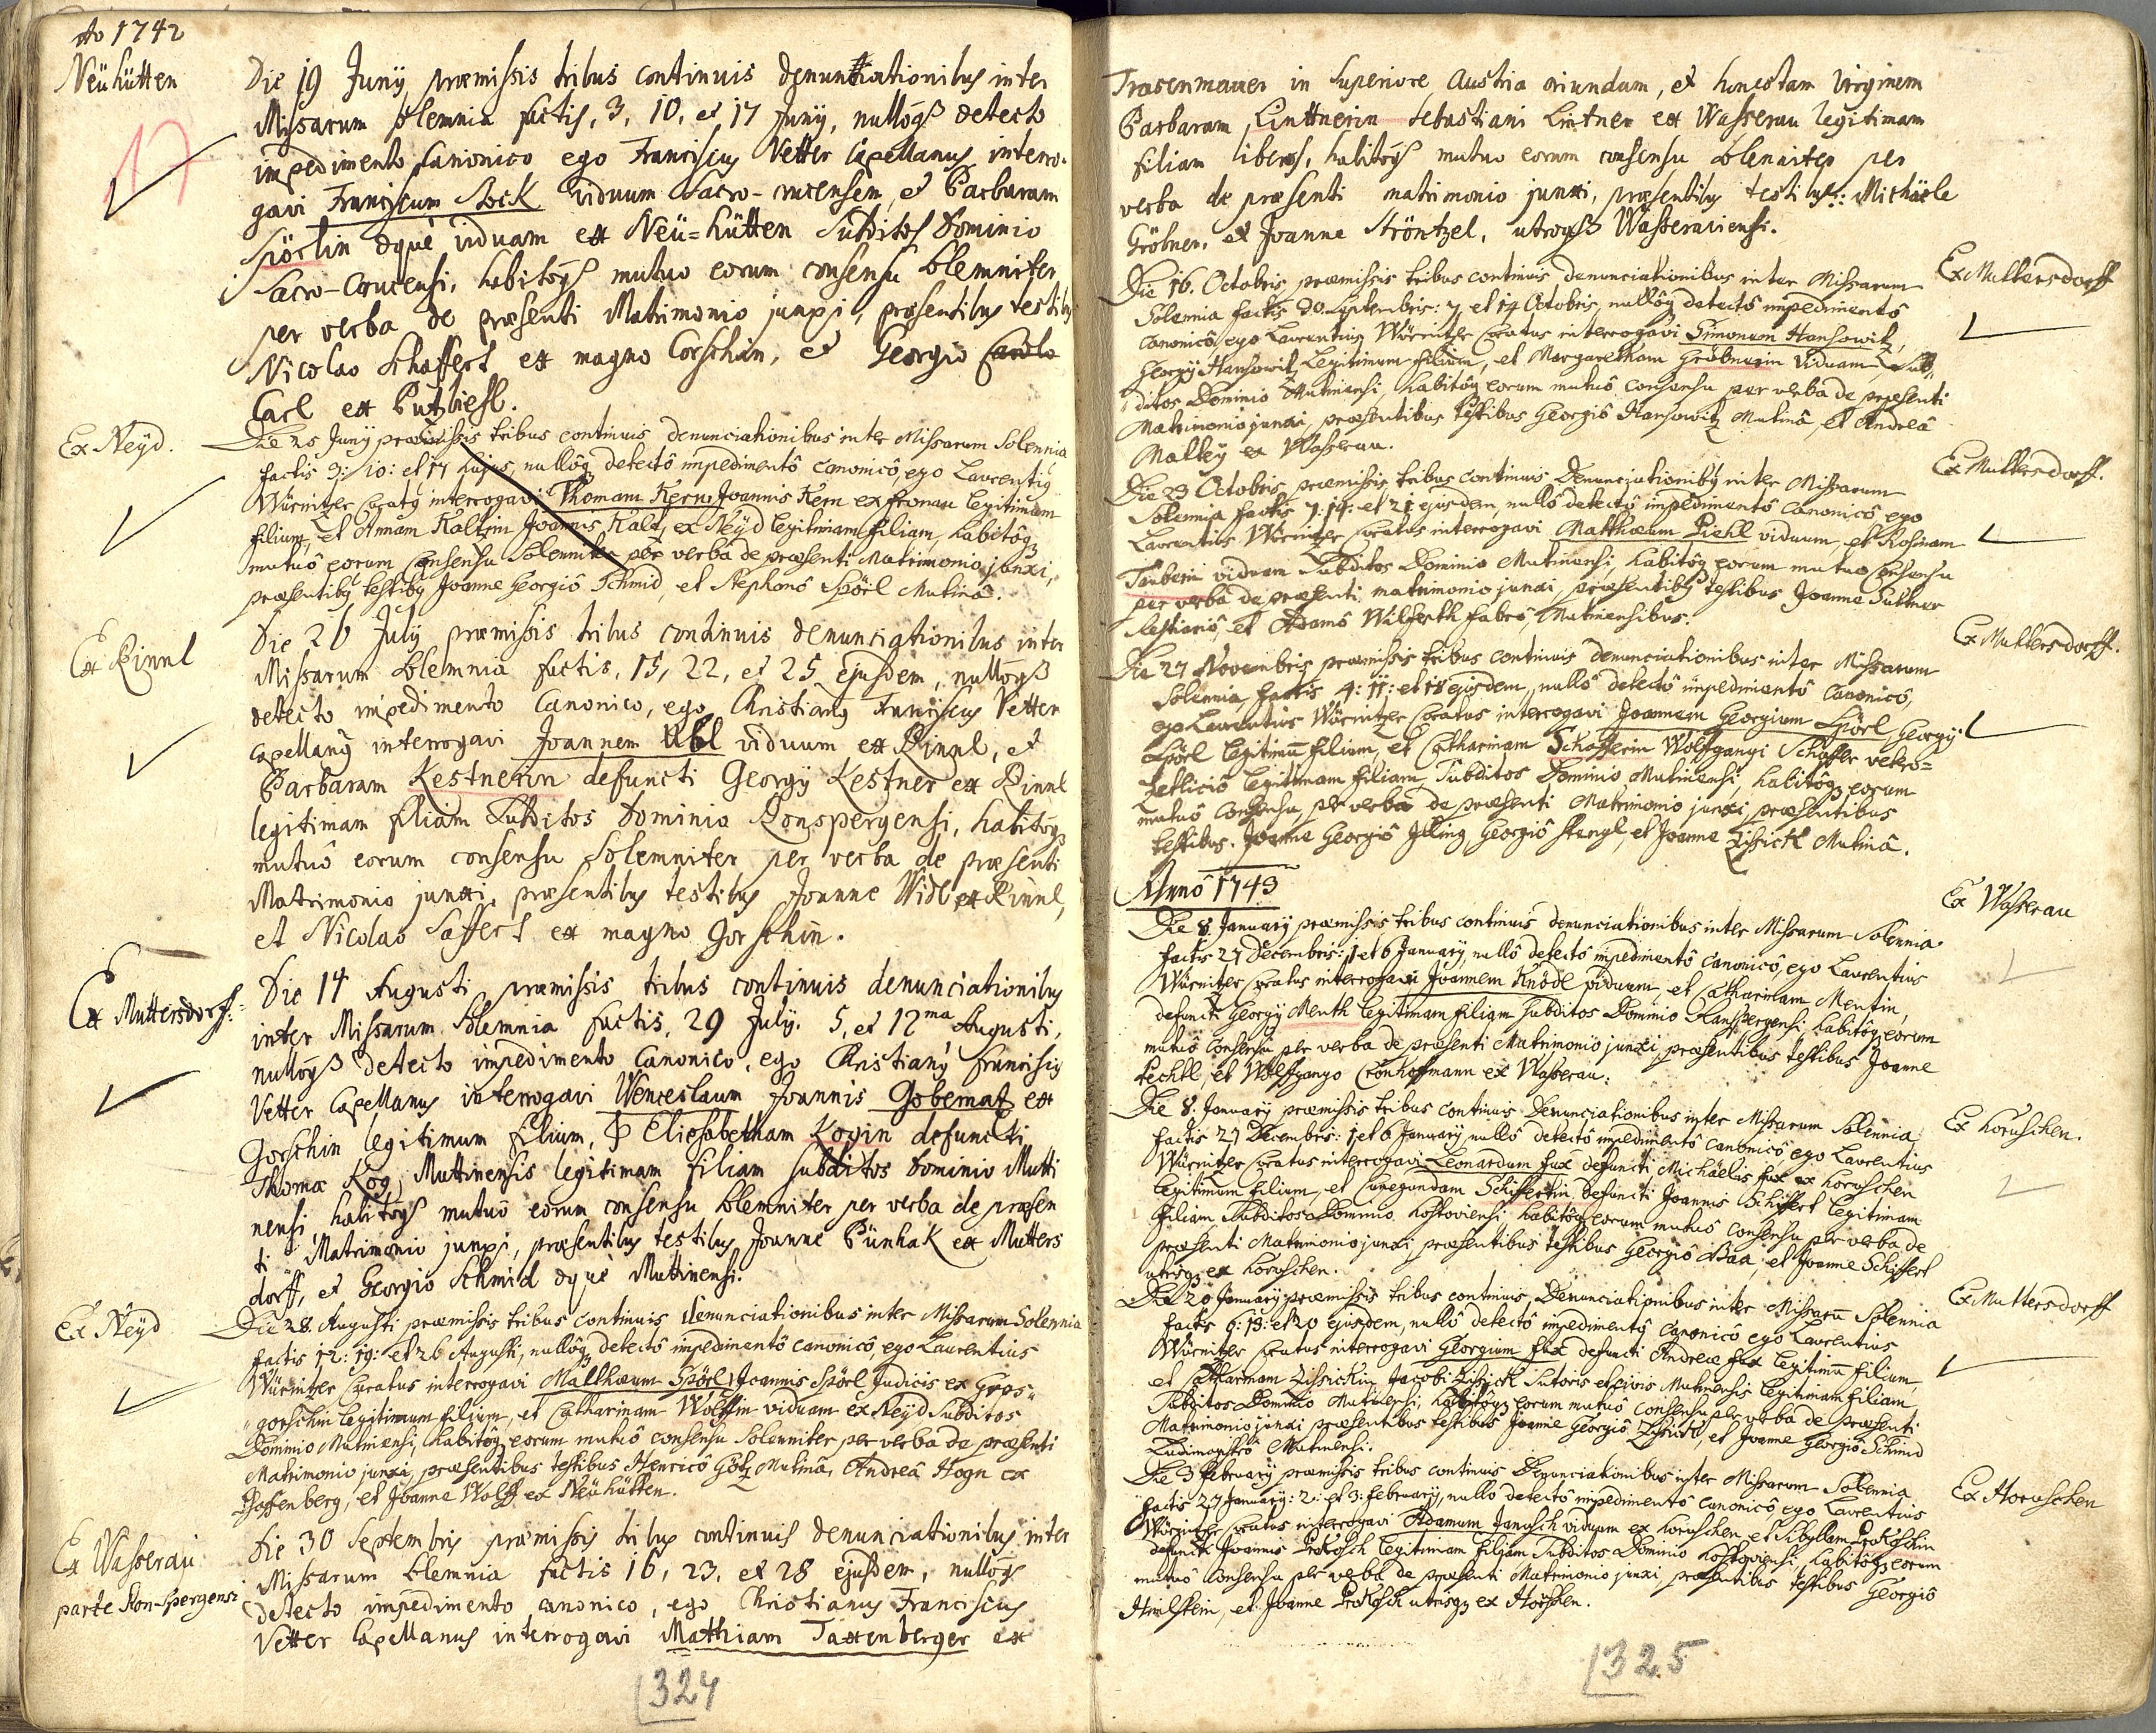 Ao 1742
Neühütten
Die 19 Junÿ præmissis tribus continuis denuntiationibus inter
Missarum solemnia factis, 3, 10, et 17 Junÿ, nullóqs detecto
impedimento Canonico ego Franciscus Vetter Capellanus interro-
gavi Franciscum Sock viduum Sacro-crucensem, et Barbaram
Spörlin æquè viduam ex Neü=hütten Subditos Dominio
Sacro-Crucensi, habitóqs mutuo eorum consensu solemniter
per verba de præsenti Matrimonio junxi, præsentibus testibus
Nicolao Schaffert ex magno Gorschin, et Georgio
Carl ex Putzbiehl.
17
Ex Neÿd.
Die 25 Junÿ præmissis tribus continuis denunciationibus inter Missarum Solennia
factis 3: 10: et 17 hujus, nullôq detectô impedimentô canonicô, ego Laurentiq
Würnitzer Curatq interrogavi Thomam Kern Joannis Kern ex Fronau legitimum
filium, et Annam Kaltzin Joannis Kaltz ex Neÿd legitimam filiam, habitôq
mutuô eorum consensu Solenniter per verba de præsenti Matrimonio junxi,
præsentibq testibq Joanne Georgiô Schmid, et Stephanô Spörl Mutinâ.
Ex Rinnl
Die 26 Julÿ præmissis tribus continuis denunciationibus inter
Missarum solemnia factis, 15, 22, et 25 ejusdem, nullóqs
detecto impedimento Canonico, ego Christianq Franciscus Vetter
Capellanq interrogavi Joannem Ubl viduum ex Rinnl, et
Barbaram Kestnerin defuncti Georgÿ Kestner ex Rinnl
legitimam filiam Subditos Dominio Ronspergensi, habitóqs
mutuô eorum consensu solemniter per verba de præsenti
Matrimonio junxi, præsentibus testibus Joanne Widl ex Rinnl,
et Nicolao Saffert ex magno Gorschin.
Ex Muttersdorff.
Die 14 Augusti præmissis tribus continuis denunciationibus
inter Missarum Solemnia factis, 29 Julÿ. 5, et 12ma Augusti,
nullóqs detecto impedimento Canonico, ego Christianq Franciscq
Vetter Capellanus interrogavi Wenceslaum Joannis Gobernatz ex
Gorschin legitimum filium, & Elisabetham Kogin defuncti
Thomæ Kog Muttinensis legitimam filiam subditos Dominio Mutti
nensi, habitóqs mutuô eorum consensu solemniter per verba de præsen
ti Matrimonio junxi, præsentibus testibus Joanne Pünhak ex Mutters
dorff, et Georgio Schmid æquè Muttinensi.
Ex Neÿd
Die 28. Augusti præmissis tribus continuis denunciationibus inter Missarum Solennia
factis 12: 19: et 26 Augusti, nullôq detectô impedimentô canonicô, ego Laurentius
Würnitzer Curatus interrogavi Matthæum Spörl Joannis Spörl Judicis ex Gros-
gorschin legitimum filium, et Catharinam Wolffin viduam ex Neÿd Subditos
Dominio Mutinensi, habitôq eorum mutuô consensu Solenniter per verba de præsenti
Matrimonio junxi, præsentibus testibus Henricô Götz Mutinâ, Andreâ Hogn ex
Schaffenberg, et Joanne Wolff ex Neühütten.
Ex Wasserau
parte Ronspergensi
Die 30 Septembris præmissis tribus continuis denunciationibus inter
Missarum solemnia factis 16, 23, et 28 ejusdem, nullóqs
detecto impedimento canonico, ego Christianus Franciscus
Vetter Capellanus interrogavi Mathiam Taxenberger ex
324
Trasenmauer in Superiore Austria oriundum, et honestam Virginem
Barbaram Linttnerin Sebastiani Lintner ex Wasserau legitimam
filiam liberos, habitóqs mutuo eorum consensu solenniter per
verba de præsenti matrimonio junxi, præsentibus testibus: Michäele
Gröbner, et Joanne Ströntzel, utroqs Wasseraviensi.
Ex Muttersdorff
Die 16. Octobris, præmissis tribus continuis denunciationibus inter Missarum
Solennia factis 30 Septembris: 7 et 14 Octobris, nullôq detectô impedimentô
canonicô, ego Laurentius Würnitzer Curatus interrogavi Simonem Hansowitz,
Georgÿ Hansowitz legitimum filium, et Margaretham Gröbnerin Viduam, Sub-
ditos Dominio Mutinensi, habitôq eorum mutuô consensu per verba de præsenti
Matrimonio junxi, præsentibus testibus Georgiô Hansowitz Mutinâ, et Andreâ
Malkÿ ex Wasserau.
Ex Muttersdorff.
Die 23 Octobris, præmissis tribus continuis Denunciationibq inter Missarum
Solennia factis 7: 14: et 21 ejusdem, nullô detectô impedimentô canonicô ego
Laurentius Würnitzer Curatus interrogavi Matthæum Piehl viduum, et Rosinam
Tauberin viduam Subditos Dominio Mutinensi, habitôq eorum mutuo consensu
per verba de præsenti matrimonio junxi, præsentibq testibus Joanne Suttner
Restiariô, et Adamô Wilferth fabrô, Mutinensibus.
Ex Muttersdorff.
Die 27 Novembris præmissis tribus continuis denunciationibus inter Missarum
Solennia factis 4: 11: et 18 ejusdem, nullô detectô impedimentô canonicô,
ego Laurentius Würnitzer Curatus interrogavi Joannem Georgium Spörl Georgÿ
Spörl legitimũ filium, et Catharinam Schafferin Wolffgangi Schaffer vetero=
Zetlicio legitimam filiam, Subditos Dominio Mutinensi, habitôq eorum
mutuô consensu, per verba de præsenti Matrimonio junxi, præsentibus
testibus. Joanne Georgiô Illing, Georgiô Stengl, et Joanne Zissickl Mutinâ.
Annô 1743
Ex Wasserau
Die 8. Januarÿ præmissis tribus continuis denunciationibus inter Missarum Solennia
factis 27 Decembris: 1 et 6 Januarÿ, nullô detectô impedimentô canonicô, ego Laurentius
Würnitzer Curatus interrogavi Joannem Knödl viduum, et Catharinam Mentin,
defuncti Georgÿ Menth legitimam filiam Subditos Dominio Ranspergensi, habitôq eorum
mutuô consensu per verba de præsenti Matrimonio junxi, præsentibus testibus Joanne
Pechtl, et Wolffgango Cronhoffmann ex Wasserau.
Ex Horuschen.
Die 8. Januarÿ præmissis tribus continuis Denunciationibus inter Missarum Solennia
factis 27 Decembris: 1 et 6 Januarÿ, nullô detectô impedimentô canonicô ego Laurentius
Würnitzer Curatus interrogavi Leonardum Fux defuncti Michäelis Fux ex Horuschen
legitimum filium, et Cunegundam Schiffertin defuncti Joannis Schiffert legitimam
filiam Subditos Dominio Hostoviensi habitôq eorum mutuô consensu per verba de
præsenti Matrimonio junxi præsentibus testibus Georgiô Baa, et Joanne Schiffert
utrôq ex Horuschen.
Ex Muttersdorff
Die 20 Januarÿ præmissis tribus continuis Denunciationibus inter Missarũ Solennia
factis 6: 13: et 20 ejusdem, nullô detectô impedimentô canonicô ego Laurentius
Würnitzer Curatus interrogavi Georgium Fux defuncti Andreæ Fux legitimũ filium,
et Catharinam Zissickin Jacobi Zissick Sutoris et civis Mutinensis legitimam filiam,
Subditos Dominio Mutinensi, habitôq eorum mutuô consensu per verba de præsenti
Matrimonio junxi præsentibus testibus Joanne Georgiô Zissick, et Joanne Georgiô Schmid
Ludimagistrô Mutinensi.
Ex Horuschen
Die 3 Februarÿ præmissis tribus continuis Denunciationibus inter Missarum Solennia
factis 27 Januarÿ: 2: et 3: Februarÿ, nullo detectô impedimentô canonicô, ego Laurentius
Würnitzer Curatus interrogavi Adamum Janusch viduum ex Horuschen, et Sibyllam Prokschin
defuncti Joannis Prokosch legitimam filiam Subditos Dominio Hostoviensi habitôq eorum
mutuô consensu per verba de præsenti Matrimonio junxi, præsentibus testibus Georgiô
Hirulstein, et Joanne Prokosch utrôq ex Horschen.
325